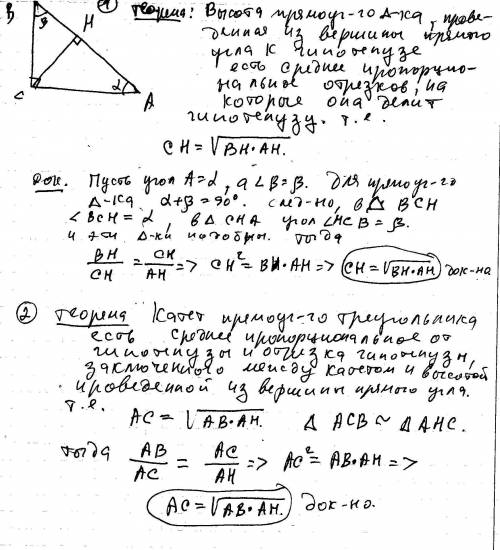 B
β
H
C
α
A
① Теорема: Высота прямоуг-го Δ-ка, прове-
денная из вершины прямого
угла к гипотенузе
есть среднее пропорцио-
нальное отрезков, на
которые она делит
гипотенузу. т.е.
CH = √BH·AH.
Док. Пусть угол A=α, а ∠B=β. Для прямоуг-го
Δ-ка α+β=90°. След-но, в Δ BCH
∠BCH = α, в Δ CHA угол ∠HCB = β.
и эти Δ-ки подобны. тогда
BH/CH = CH/AH => CH² = BH·AH => CH=√BH·AH док-на
② Теорема Катет прямоуг-го треугольника
есть среднее пропорциональное от
гипотенузы и отрезка гипотенузы,
заключенного между катетом и высотой
проведенной из вершины прямого угла.
т.е. AC = √AB·AH. Δ ACB ~ Δ AHC.
тогда AB/AC = AC/AH => AC² = AB·AH =>
AC=√AB·AH. док-но.